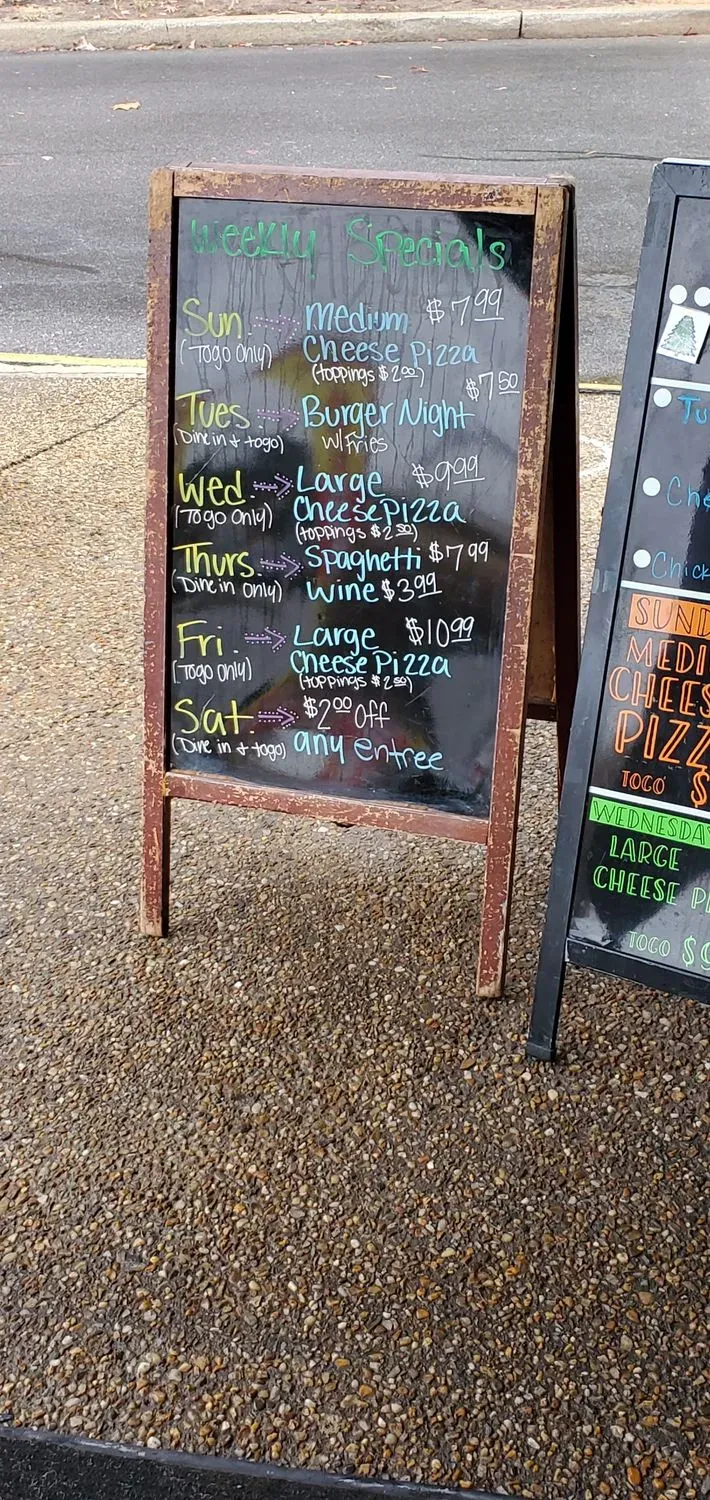 Weekly Specials
Sun Medium $7.99
(Togo Only) Cheese Pizza
(toppings $2.00)
$7.50
Tues Burger Night
(Dine in + togo) w/Fries
Wed Large $9.99
(Togo Only) Cheese Pizza
(toppings $2.50)
Thurs Spaghetti $7.99
(Dine in Only) Wine $3.99
Fri Large $10.99
(Togo Only) Cheese Pizza
(toppings $2.50)
Sat $2.00 Off
(Dine in + togo) any entree
Tu
Che
Chick
SUND
MEDI
CHEES
PIZZ
TOGO $
WEDNESDAY
LARGE
CHEESE P
TOGO $9